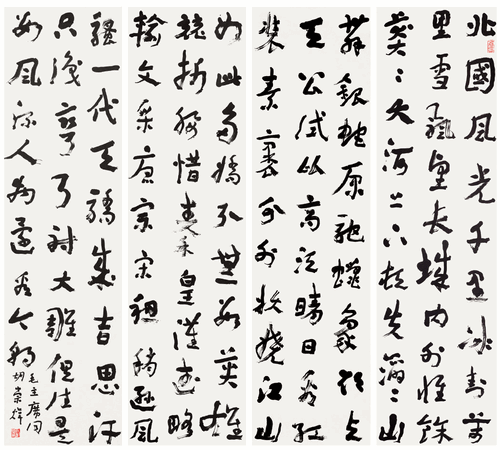 北國風光千里冰封萬
里雪飄望長城内外惟餘
莽〻大河上下頓失滔〻山
舞銀蛇原馳蠟象欲與
天公試比高須晴日看紅
裝素裹分外妖嬈江山
如此多嬌引無數英雄
競折腰惜秦皇漢武略
輸文采唐宗宋祖稍遜風
騷一代天驕成吉思汗
只識彎弓射大雕俱往矣
數風流人物還看今朝
毛主席詞
胡崇煒